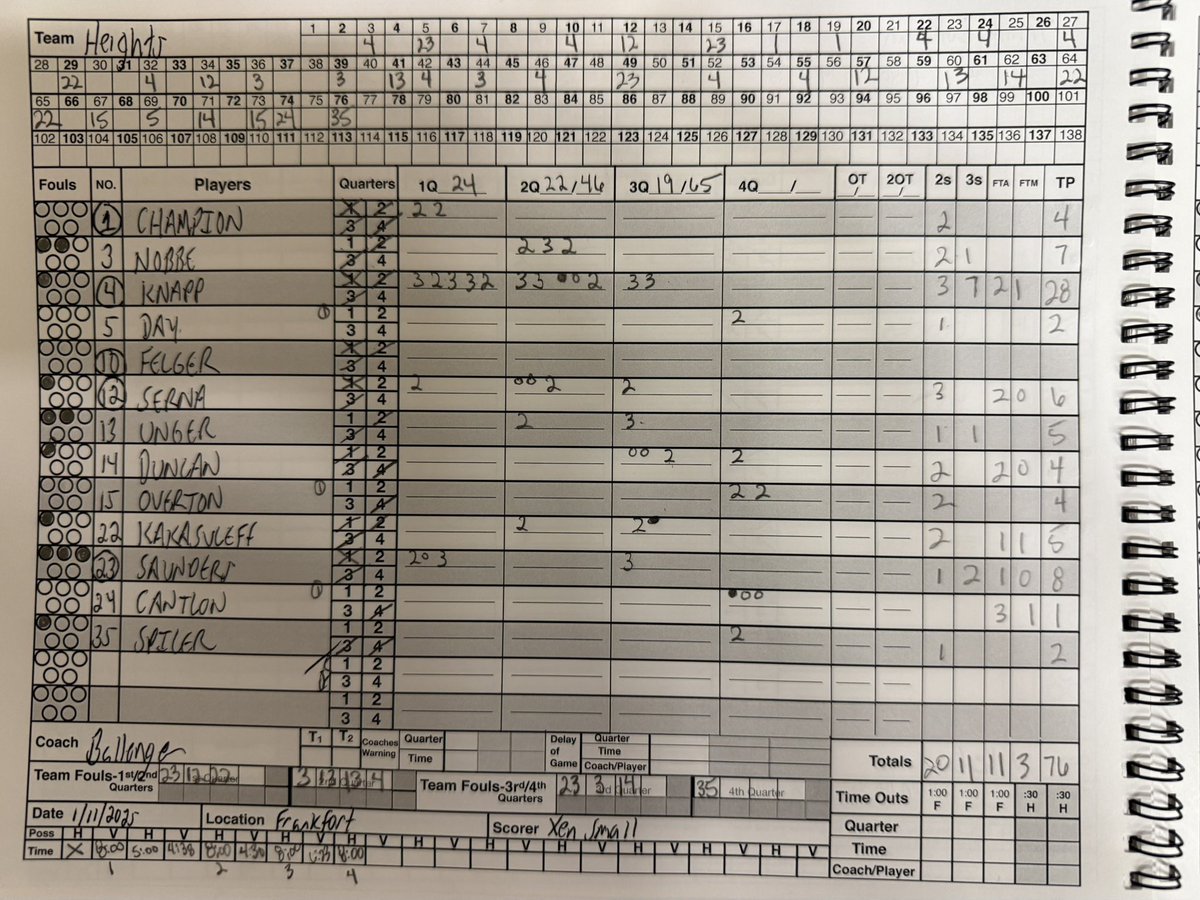 Team Heights 1 2 3 4 5 6 7 8 9 10 11 12 13 14 15 16 17 18 19 20 21 22 23 24 25 26 27
4 23 4 4 12 23 1 1 4 4 4
28 29 30 31 32 33 34 35 36 37 38 39 40 41 42 43 44 45 46 47 48 49 50 51 52 53 54 55 56 57 58 59 60 61 62 63 64
22 4 12 3 3 13 4 3 4 23 4 4 12 13 14 22
65 66 67 68 69 70 71 72 73 74 75 76 77 78 79 80 81 82 83 84 85 86 87 88 89 90 91 92 93 94 95 96 97 98 99 100 101
22 15 5 14 15 24 35
102 103 104 105 106 107 108 109 110 111 112 113 114 115 116 117 118 119 120 121 122 123 124 125 126 127 128 129 130 131 132 133 134 135 136 137 138
Fouls NO. Players Quarters 1Q 24 2Q 22/46 3Q 19/65 4Q / OT / 2OT / 2s 3s FTA FTM TP
1 CHAMPION 1 2 3 4 2 2 2 4
3 NOBBE 1 2 3 4 2 3 2 2 1 7
4 KNAPP 1 2 3 4 3 2 3 3 2 3 3 2 3 3 3 7 2 1 28
5 DAY 1 2 3 4 2 1 2
10 FELGER 1 2 3 4
12 SERNA 1 2 3 4 2 2 2 3 2 0 6
13 UNGER 1 2 3 4 2 3 1 1 5
14 DUNCAN 1 2 3 4 2 2 2 2 0 4
15 OVERTON 1 2 3 4 2 2 2 4
22 KAKASULEFF 1 2 3 4 2 2 2 1 1 5
23 SAUNDERS 1 2 3 4 2 3 3 1 2 1 0 8
24 CANTLON 1 2 3 4 3 1 1
35 SPILER 1 2 3 4 2 1 2
1 2 3 4
1 2 3 4
Coach Ballenger T1 T2 Coaches Warning Quarter Time Delay of Game Quarter Time Coach/Player Totals 20 11 11 3 76
Team Fouls-1st/2nd Quarters 23 12 22 3 13 13 4 2nd Quarter Team Fouls-3rd/4th Quarters 23 3 14 3rd Quarter 35 4th Quarter Time Outs 1:00 F 1:00 F 1:00 F :30 H :30 H
Date 1/11/2025 Location Frankfort Scorer Xen Small Quarter
Poss H V H V H V H V H V H V H V H V H V H V H V Time
Time X 8:00 5:00 4:38 8:00 4:30 8:00 8:00 Coach/Player
1 2 3 4